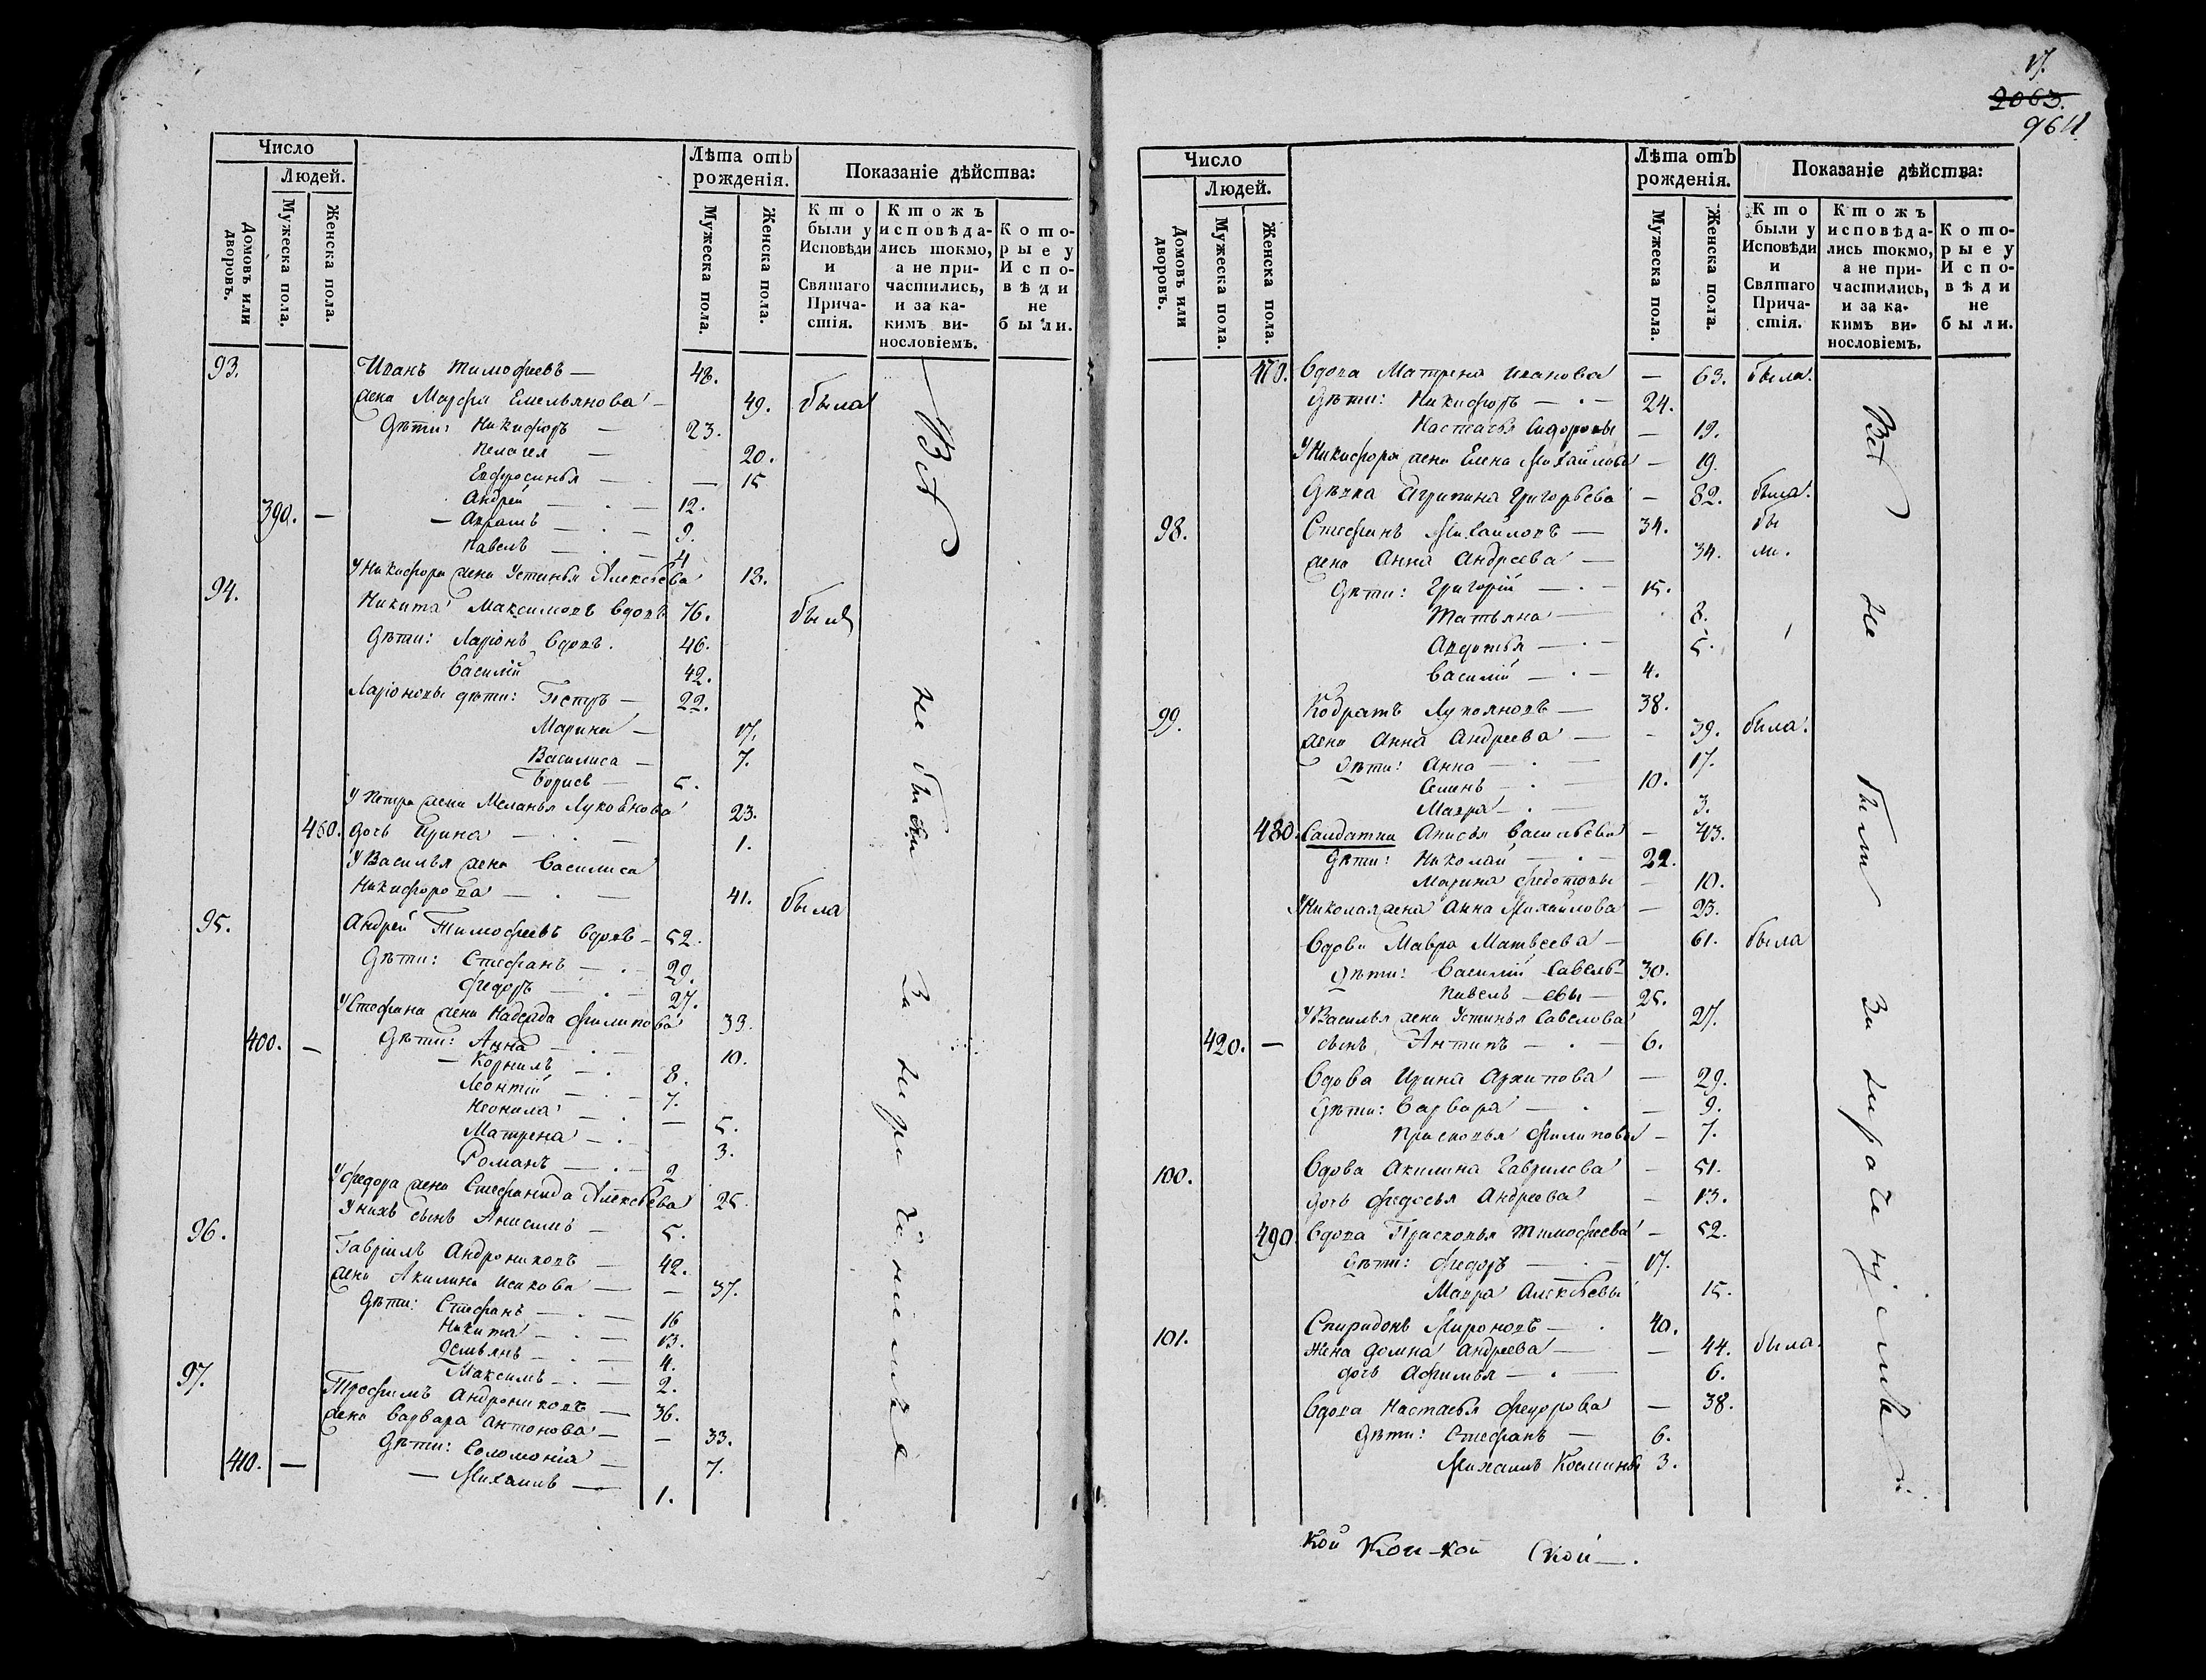 Число
Людей.
Домовъ или дворовъ.
Мужеска пола.
Женска пола.
Лѣта отъ рожденія.
Мужеска пола.
Женска пола.
Показаніе дѣйства:
Кто были у Исповѣди и Святаго Причастія.
Ктожъ исповѣдались токмо, а не причастились, и за какимъ винословіемъ.
Которые у Исповѣди не были.
93. Иванъ Тимофеевъ — 48.
жена Марфа Емельянова — 49. была
Дѣти: Никифоръ — 23.
Пелагея — 20.
Евфросинья — 15
Андрей — 12.
390. — Аврамъ — 9.
Павелъ — 4
У Никифора жена Устинья Алексѣева 18.
94. Никита Максимовъ вдовъ 76. былъ
Дѣти: Ларіонъ вдовъ. 46.
Василій 42.
Ларіоновы дѣти: Петръ — 22.
Марина — 17.
Василиса — 7.
Борисъ — 5.
У Петра жена Меланья Лукоянова 23.
460. дочь Ирина — 1.
У Василья жена Василиса
Никифорова — 41. была
95. Андрей Тимофеевъ вдовъ — 52.
Дѣти: Стефанъ — 29.
Федоръ — 27.
У Стефана жена Надежда Филипова 33.
Дѣти: Анна — 10.
400. — Корнилъ — 8.
Леонтій — 7.
Неонила — 5.
Матрена — 3.
Романъ — 2
У Федора жена Стефанида Алексѣева 25.
У нихъ сынъ Анисимъ — 5.
96. Гавріилъ Андрониковъ — 42.
жена Акилина Исакова — 37.
Дѣти: Стефанъ — 16
Никита — 13.
Демьянъ — 4.
Максимъ — 2.
97. Трофимъ Андрониковъ — 36.
жена Варвара Антонова — 33.
Дѣти: Соломонія — 7.
410. — Михаилъ — 1.
Всѣ не были за нерачѣніемъ
17.
2063.
964
Число
Людей.
Домовъ или дворовъ.
Мужеска пола.
Женска пола.
Лѣта отъ рожденія.
Мужеска пола.
Женска пола.
Показаніе дѣйства:
Кто были у Исповѣди и Святаго Причастія.
Ктожъ исповѣдались токмо, а не причастились, и за какимъ винословіемъ.
Которые у Исповѣди не были.
470. Вдова Матрена Иванова — 63. была.
Дѣти: Никифоръ — 24.
Настасья Сидоровы — 19.
У Никифора жена Елена Михайлова — 19.
Дѣвка Агрипина Григорьева — 82. была.
98. Стефанъ Михайловъ — 34. бы
жена Анна Андреева — 34. ли.
Дѣти: Григорій — 15.
Татьяна — 8.
Авдотья — 5.
Василій — 4.
99. Кодратъ Лукояновъ — 38.
жена Анна Андреева — 39. была.
Дѣти: Анна — 17.
Семинъ — 10.
Мавра — 3.
480. Салдатка Анисья Васильева — 43.
Дѣти: Николай — 22.
Марина Федотовы — 10.
У Николая жена Анна Михайлова — 23.
Вдова Мавра Матвеева — 61. была
Дѣти: Василій Савель- 30.
Павелъ — евы — 25.
У Василья жена Устинья Савелова 27.
420. — сынъ Антипъ — 6.
Вдова Ирина Архипова — 29.
Дѣти: Варвара — 9.
Прасковья Филиповы — 7.
100. Вдова Акилина Гаврилова — 51.
дочь Федосья Андреева — 13.
490. Вдова Прасковья Тимофеева — 52.
Дѣти: Федоръ — 17.
Мавра Алексѣевы 15.
101. Спиридонъ Мироновъ — 40.
жена Домна Андреева — 44. была.
дочь Афимья — 6.
Вдова Настасья Федорова — 38.
Дѣти: Стефанъ — 6.
Михаилъ Космины 3.
Всѣ не были за нераченіемъ
кой кои-кой ской —.